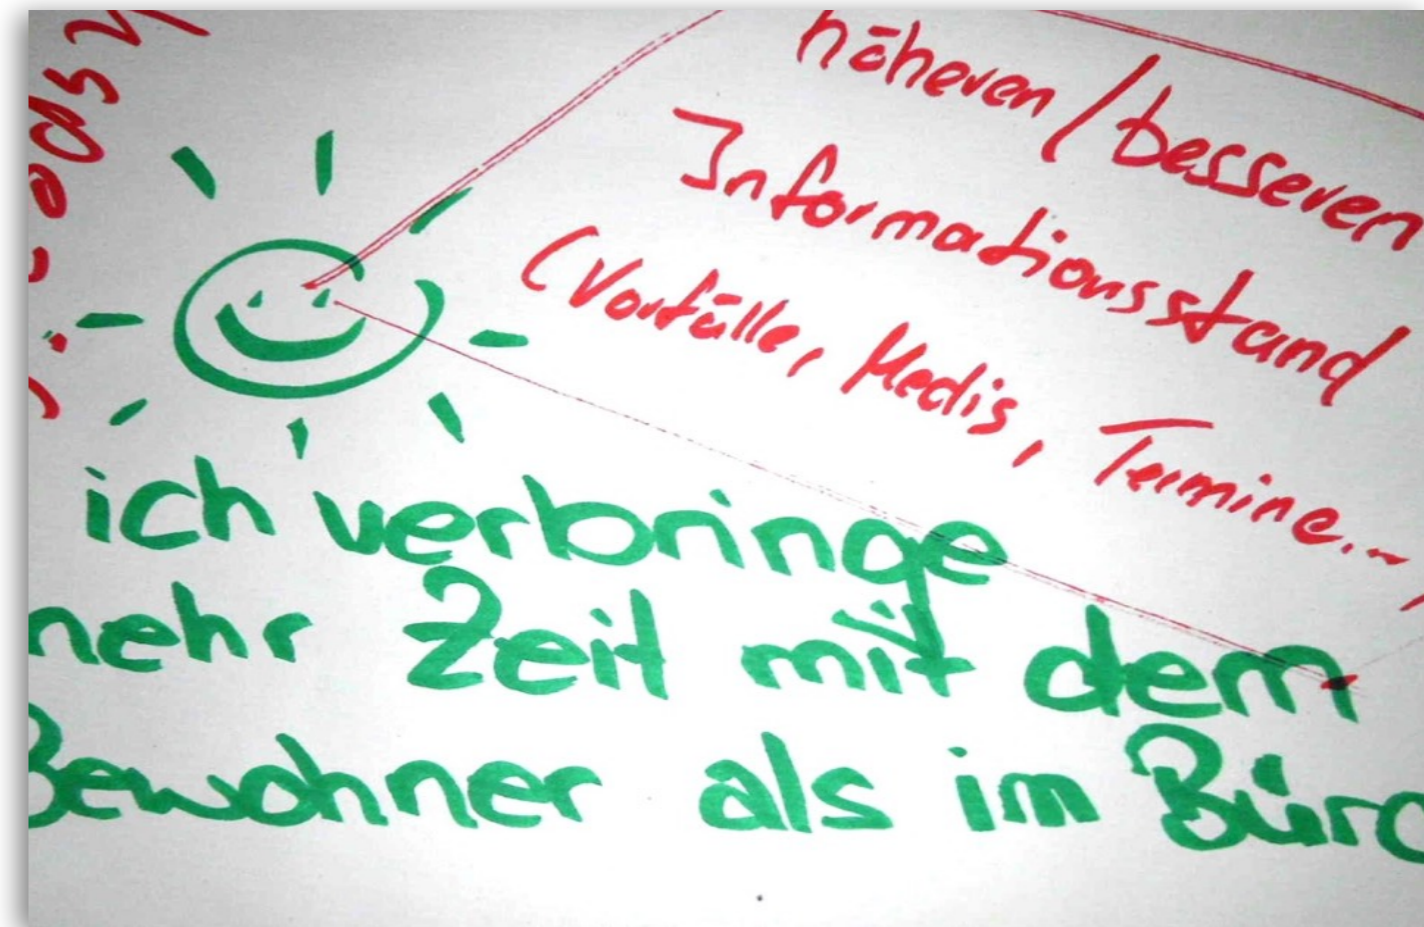 höheren / besseren
Informationsstand
(Vorfälle, Medis, Termine...)
ich verbringe
mehr Zeit mit dem
Bewohner als im Büro